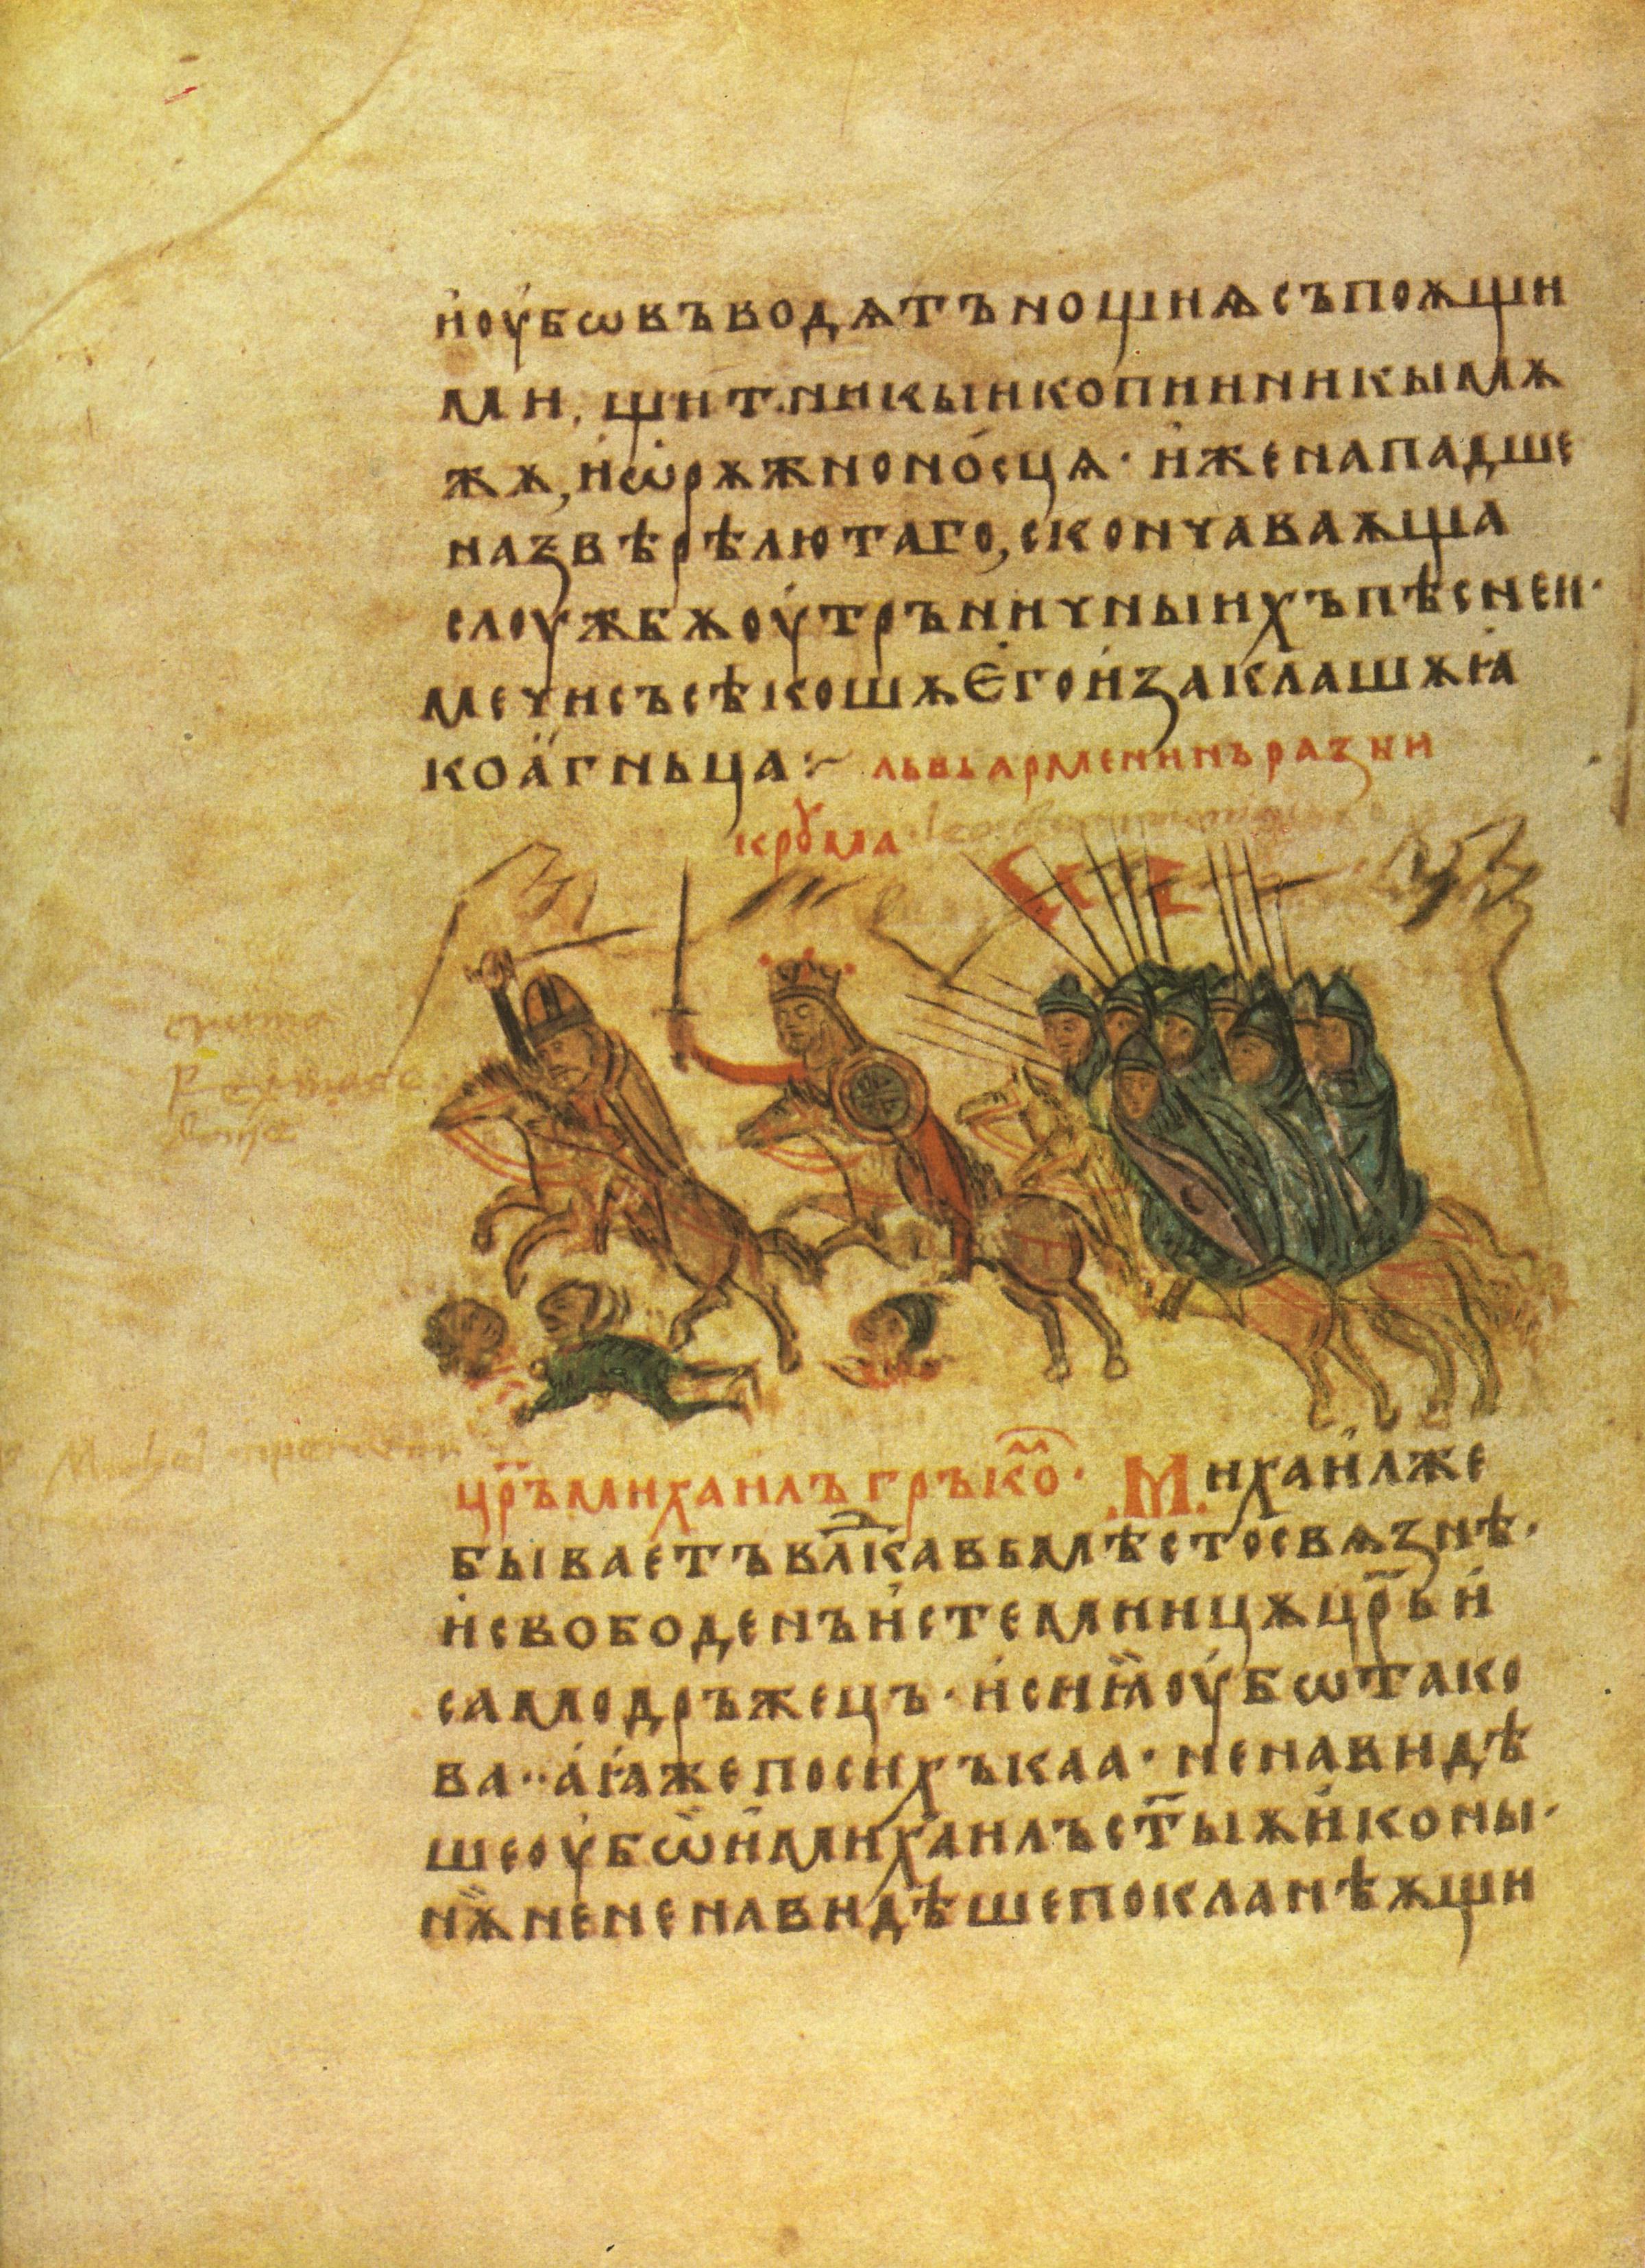 и҆оу҆бѡвъводѧтъношиѧсъпоѫщи
ми, щит.никыикопииникымѫ
жѫ, и҆ѡ҆рѫжноно́сцѧ· и҆женападше
назвѣрѣлютаго, скончаваѫща
слоужбѫоу҆трънꙇчныихъпѣснеи·
мечисъсѣкошѫ.Е҆гои҆заклашѫꙗ҆
коа҆гньца:~ львьарменинъразби
крꙋма
цр҃ъмиханлъгръкоⷨ· .М.ихаи҆лже
бываетъвл҃кавьмѣстосвѧзнѣ·
и҆свободенъи҆стемницѫцр҃ьи҆
самодръжецъ· и҆сиꙗ҆оу҆бѡтако
ва··а҆ꙗ҆жепосихъкаа· ненавидѣ
шеоу҆бѡи҆миха҆илъст҃ыѫи҆коны·
нѫ҆нененавидѣшепокланѣѫщи